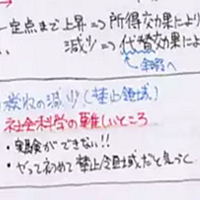 一定点まで上昇 ⇒ 所得効果により
減少 ⇒ 代替効果によ
余暇へ
税収の減少 (禁止領域)
社会科学の難しいところ
・実験ができない!!
・やって初めて禁止領域だと気づく